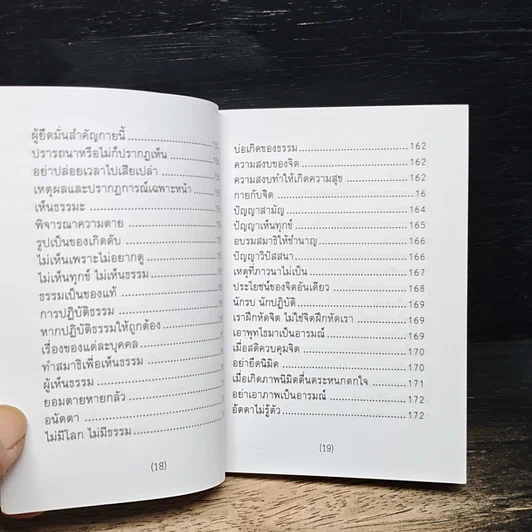 ผู้ยึดมั่นสำคัญกายนี้
ปรารถนาหรือไม่ก็ปรากฏเห็น
อย่าปล่อยเวลาไปเสียเปล่า
เหตุผลและปรากฏการณ์เฉพาะหน้า
เห็นธรรมะ
พิจารณาความตาย
รูปเป็นของเกิดดับ
ไม่เห็นเพราะไม่อยากดู
ไม่เห็นทุกข์ ไม่เห็นธรรม
ธรรมเป็นของแท้
การปฏิบัติธรรม
หากปฏิบัติธรรมให้ถูกต้อง
เรื่องของแต่ละบุคคล
ทำสมาธิเพื่อเห็นธรรม
ผู้เห็นธรรม
ยอมตายหายกลัว
อนัตตา
ไม่มีโลก ไม่มีธรรม
(18)
บ่อเกิดของธรรม 162
ความสงบของจิต 162
ความสงบทำให้เกิดความสุข 162
กายกับจิต 160
ปัญญาสามัญ 164
ปัญญาเห็นทุกข์ 165
อบรมสมาธิให้ชำนาญ 166
ปัญญาวิปัสสนา 166
เหตุที่ภาวนาไม่เป็น 167
ประโยชน์ของจิตอันเดียว 168
นักรบ นักปฏิบัติ 169
เราฝึกหัดจิต ไม่ใช่จิตฝึกหัดเรา 169
เอาพุทโธมาเป็นอารมณ์ 169
เมื่อสติควบคุมจิต 170
อย่ายึดนิมิต 170
เมื่อเกิดภาพนิมิตตื่นตระหนกตกใจ 171
อย่าเอาภาพเป็นอารมณ์ 172
อัตตาไม่รู้ตัว 172
(19)